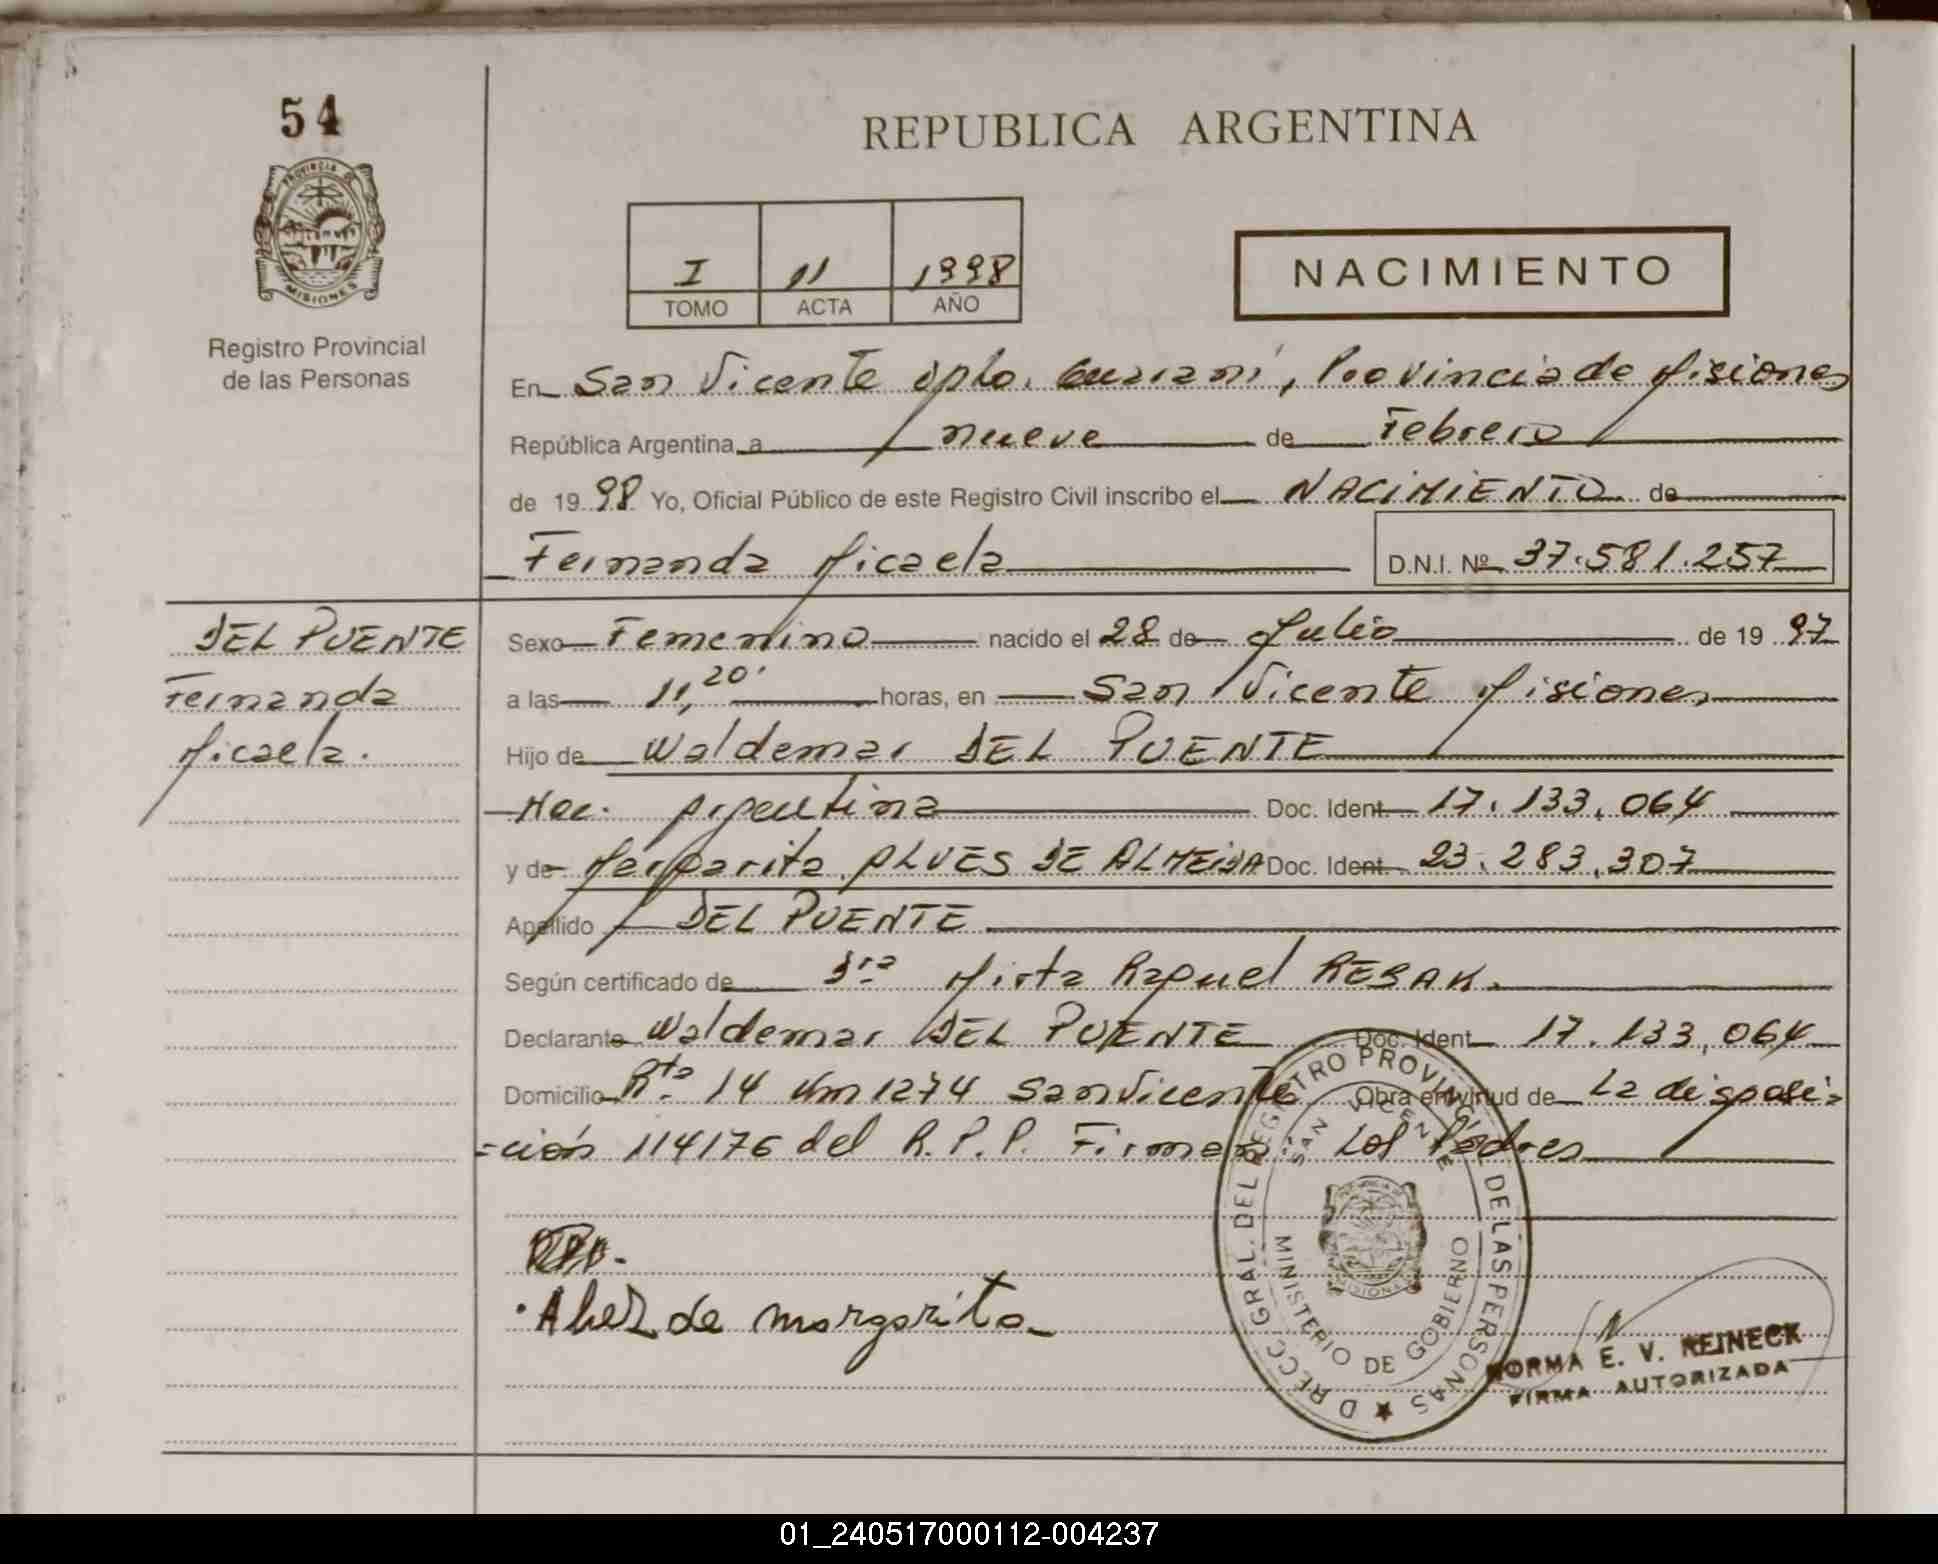 54
PROVINCIA DE
MISIONES
Registro Provincial
de las Personas
REPUBLICA ARGENTINA
I 11 1998
TOMO ACTA AÑO
NACIMIENTO
En San Vicente Dpto. Guaraní, Provincia de Misiones
República Argentina, a nueve de Febrero
de 1998 Yo, Oficial Público de este Registro Civil inscribo el NACIMIENTO de
Fernanda Micaela D.N.I. Nº 37.581.257
DEL PUENTE
Fernanda
Micaela.
Sexo Femenino nacido el 28 de Julio de 1997
a las 11,20' horas, en San Vicente Misiones
Hijo de Waldemar DEL PUENTE
Nac. Argentina Doc. Ident. 17.133.064
y de Margarita ALVES DE ALMEIDA Doc. Ident. 23.283.307
Apellido DEL PUENTE
Según certificado de Dra Mirta Raquel RESAK.
Declarante Waldemar DEL PUENTE Doc. Ident 17.133,064
Domicilio Rta. 14 Km 1274 San Vicente Obra en virtud de La disposi=
=ción 114176 del R.P.P. Firman: Los Padres
de margarita
DIRECC. GRAL. DEL REGISTRO PROVINCIAL DE LAS PERSONAS
SAN VICENTE
MINISTERIO DE GOBIERNO
MISIONES
NORMA E. V. REINECK
FIRMA AUTORIZADA
01_240517000112-004237